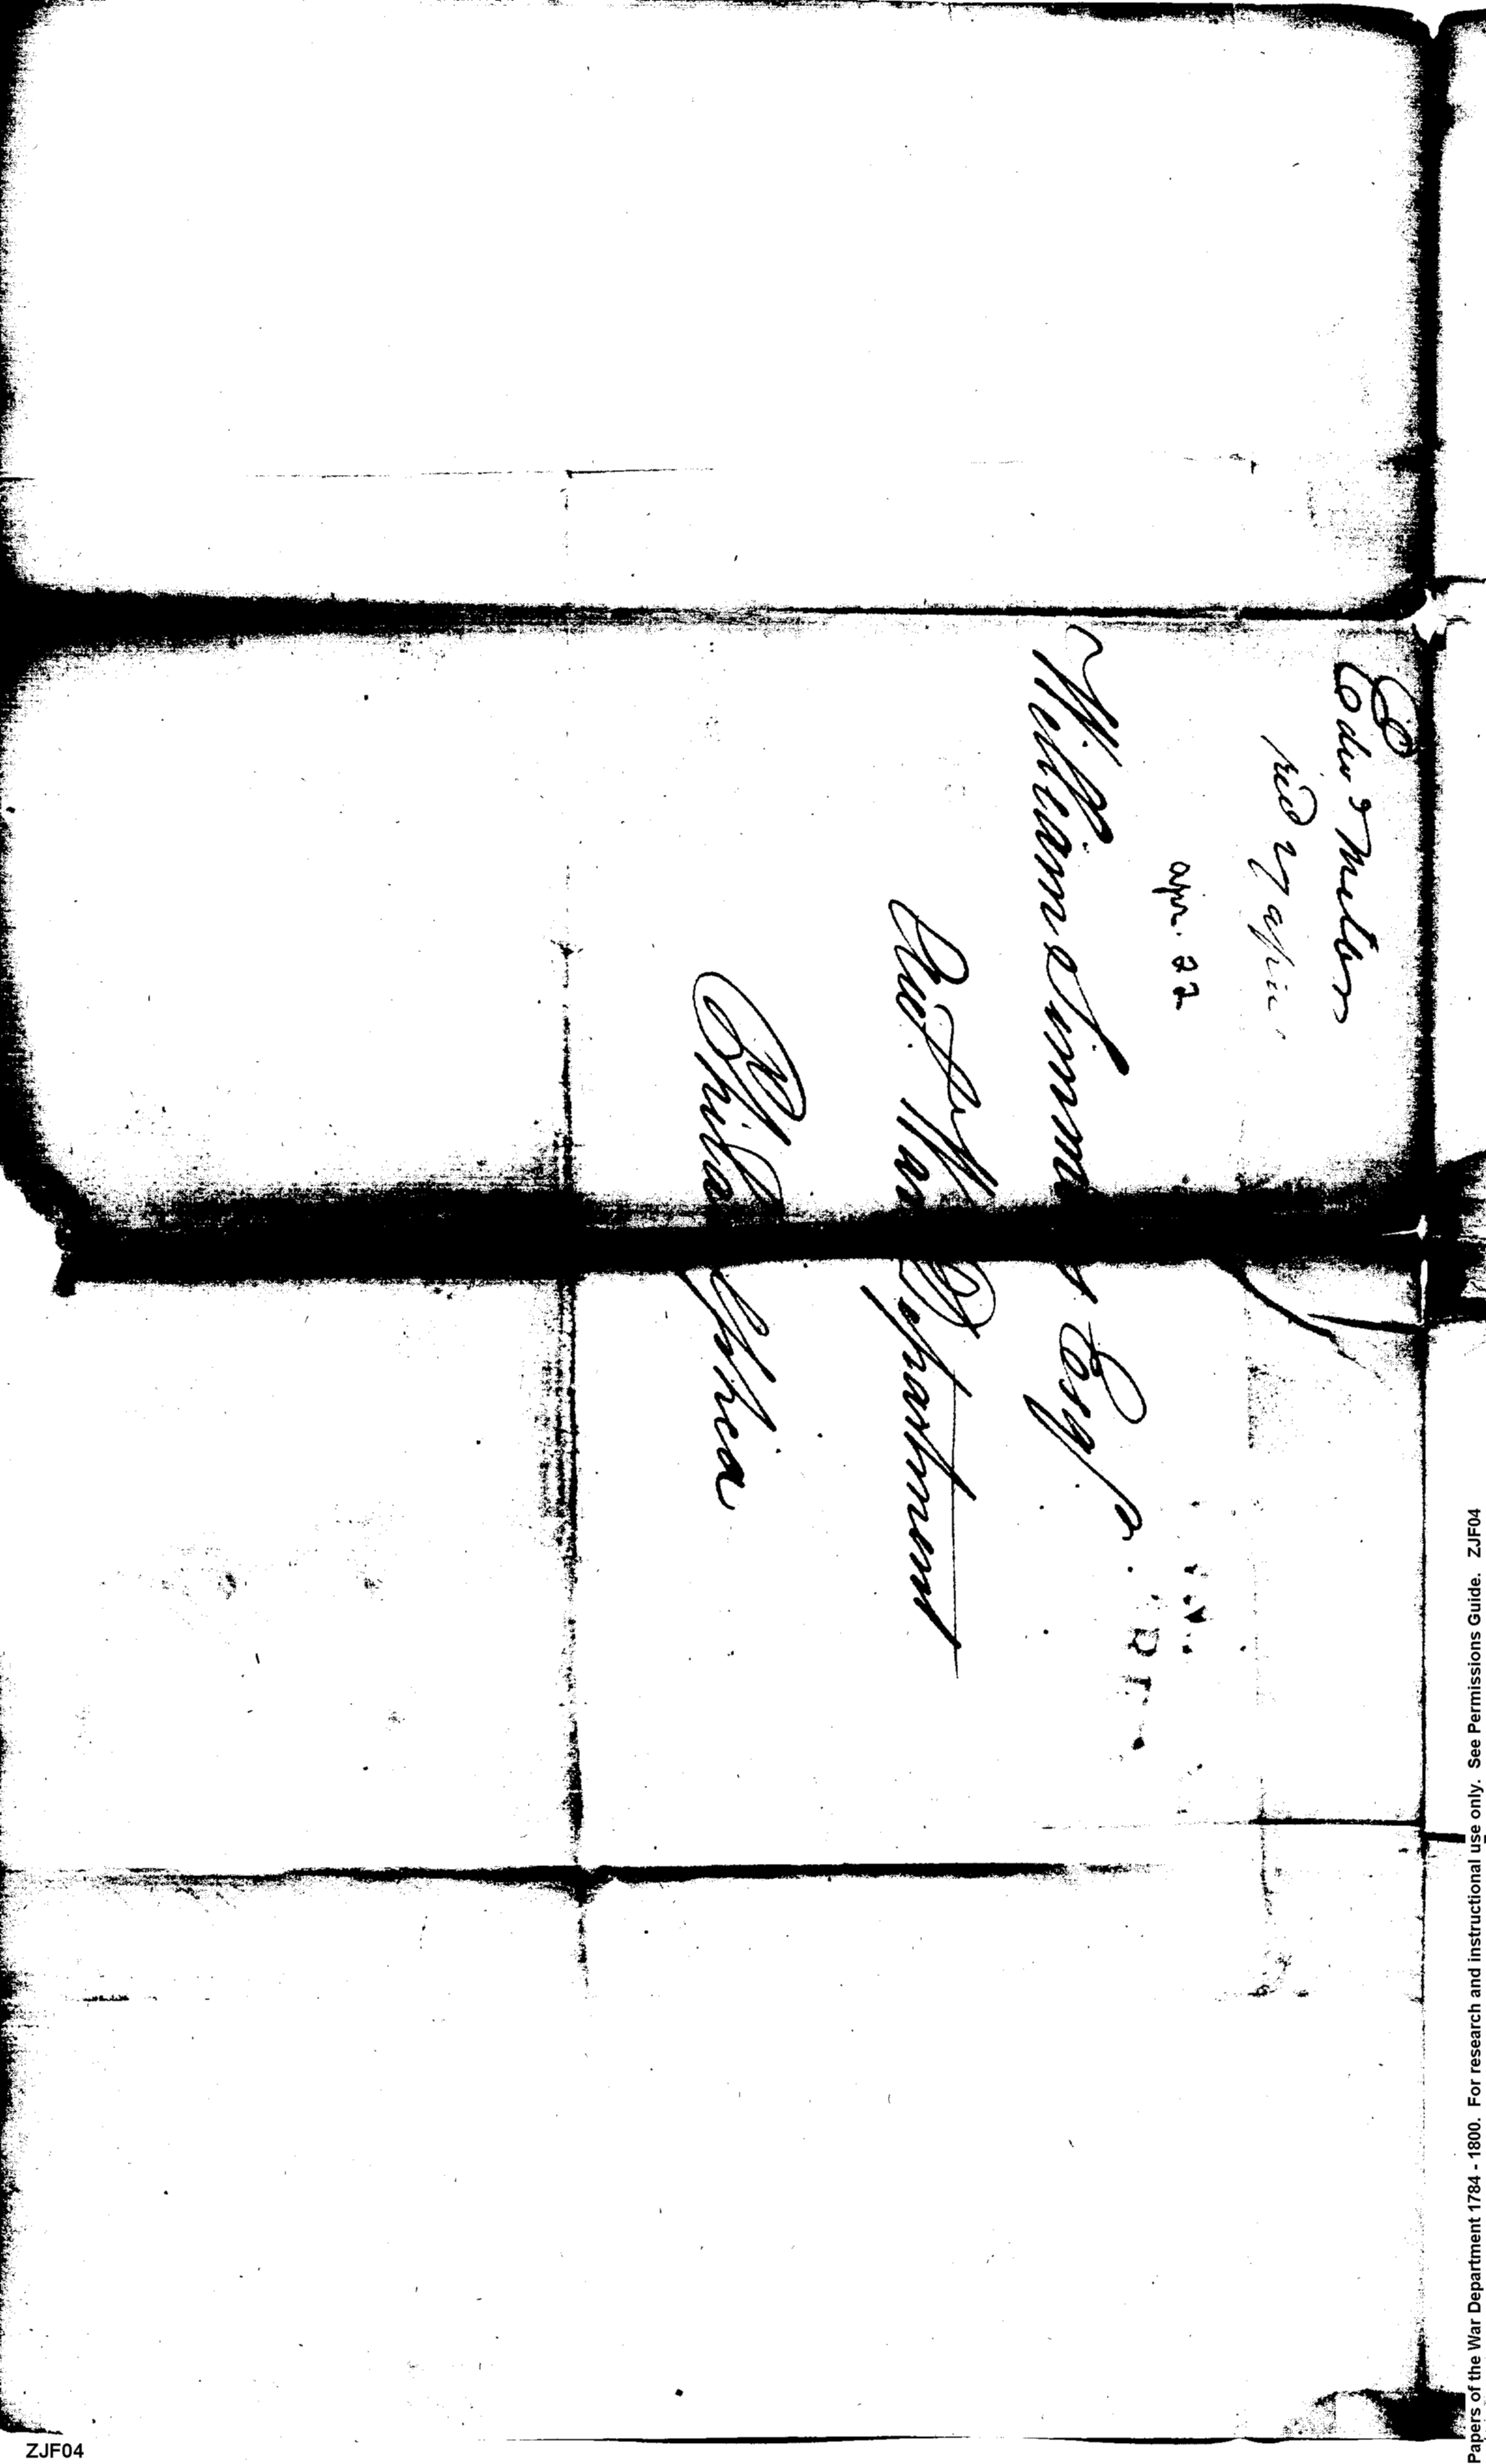 Edwd Miller
recd 27 apr
apr. 22
William Simmons Esqr.
Acct. War Department
Philadelphia
Papers of the War Department 1784 - 1800. For research and instructional use only. See Permissions Guide. ZJF04
ZJF04